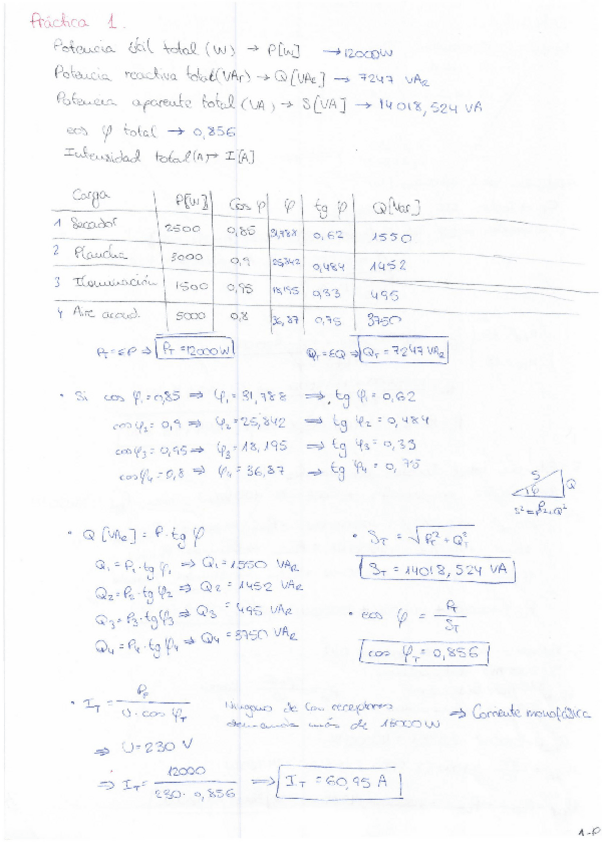 Práctica 1.
Potencia útil total (W) → P[W] → 12000W
Potencia reactiva total (VAr) → Q[VAr] → 7247 VAR
Potencia aparente total (VA) → S[VA] → 14018,524 VA
cos φ total → 0,856
Intensidad total (A) → I[A]
Carga P[W] Cos φ φ tg φ Q[Var]
1 Secador 2500 0,85 31,788 0,62 1550
2 Plancha 3000 0,9 25,842 0,484 1452
3 Iluminación 1500 0,95 18,195 0,33 495
4 Aire acond. 5000 0,8 36,87 0,75 3750
PT = ΣP ⇒ PT = 12000W QT = ΣQ ⇒ QT = 7247 VAR
• Si cos φ1 = 0,85 ⇒ φ1 = 31,788 ⇒ tg φ1 = 0,62
cos φ2 = 0,9 ⇒ φ2 = 25,842 ⇒ tg φ2 = 0,484
cos φ3 = 0,95 ⇒ φ3 = 18,195 ⇒ tg φ3 = 0,33
cos φ4 = 0,8 ⇒ φ4 = 36,87 ⇒ tg φ4 = 0,75
S Q
φ
S² = P² + Q²
• Q [VAR] = P · tg φ
Q1 = P1 · tg φ1 ⇒ Q1 = 1550 VAR
Q2 = P2 · tg φ2 ⇒ Q2 = 1452 VAR
Q3 = P3 · tg φ3 ⇒ Q3 = 495 VAR
Q4 = P4 · tg φ4 ⇒ Q4 = 3750 VAR
• ST = √PT² + QT²
ST = 14018,524 VA
• cos φ = PT / ST
cos φT = 0,856
• IT = PT / U · cos φT Ninguno de los receptores
demanda más de 15000 W ⇒ Corriente monofásica
⇒ U = 230 V
⇒ IT = 12000 / 230 · 0,856 ⇒ IT = 60,95 A